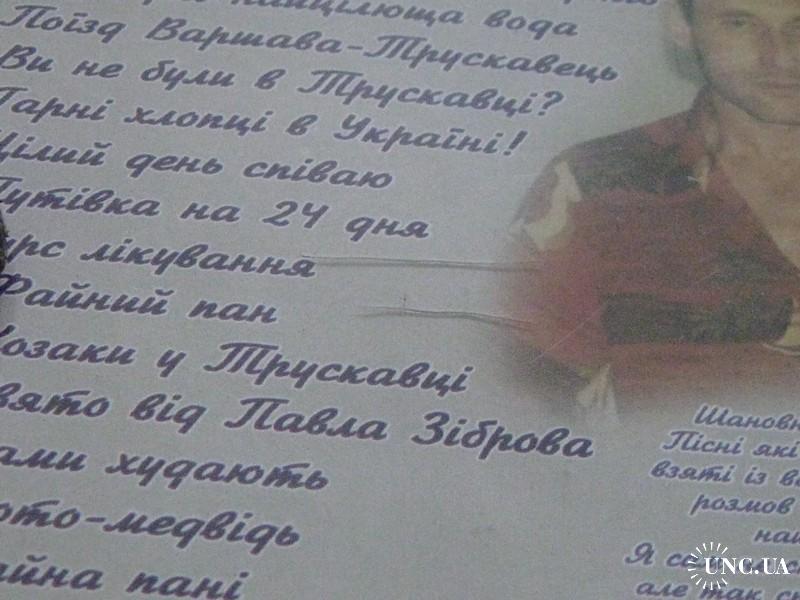 найцілюща вода
Поїзд Варшава-Трускавець
Ви не були в Трускавці?
Гарні хлопці в Україні!
Цілий день співаю
Путівка на 24 дня
лікування
Файний пан
Козаки у Трускавці
від Павла Зіброва
худають
-медвідь
пані
Шановн
Пісні які
взяті із
розмов
Я
але так
UNC.UA